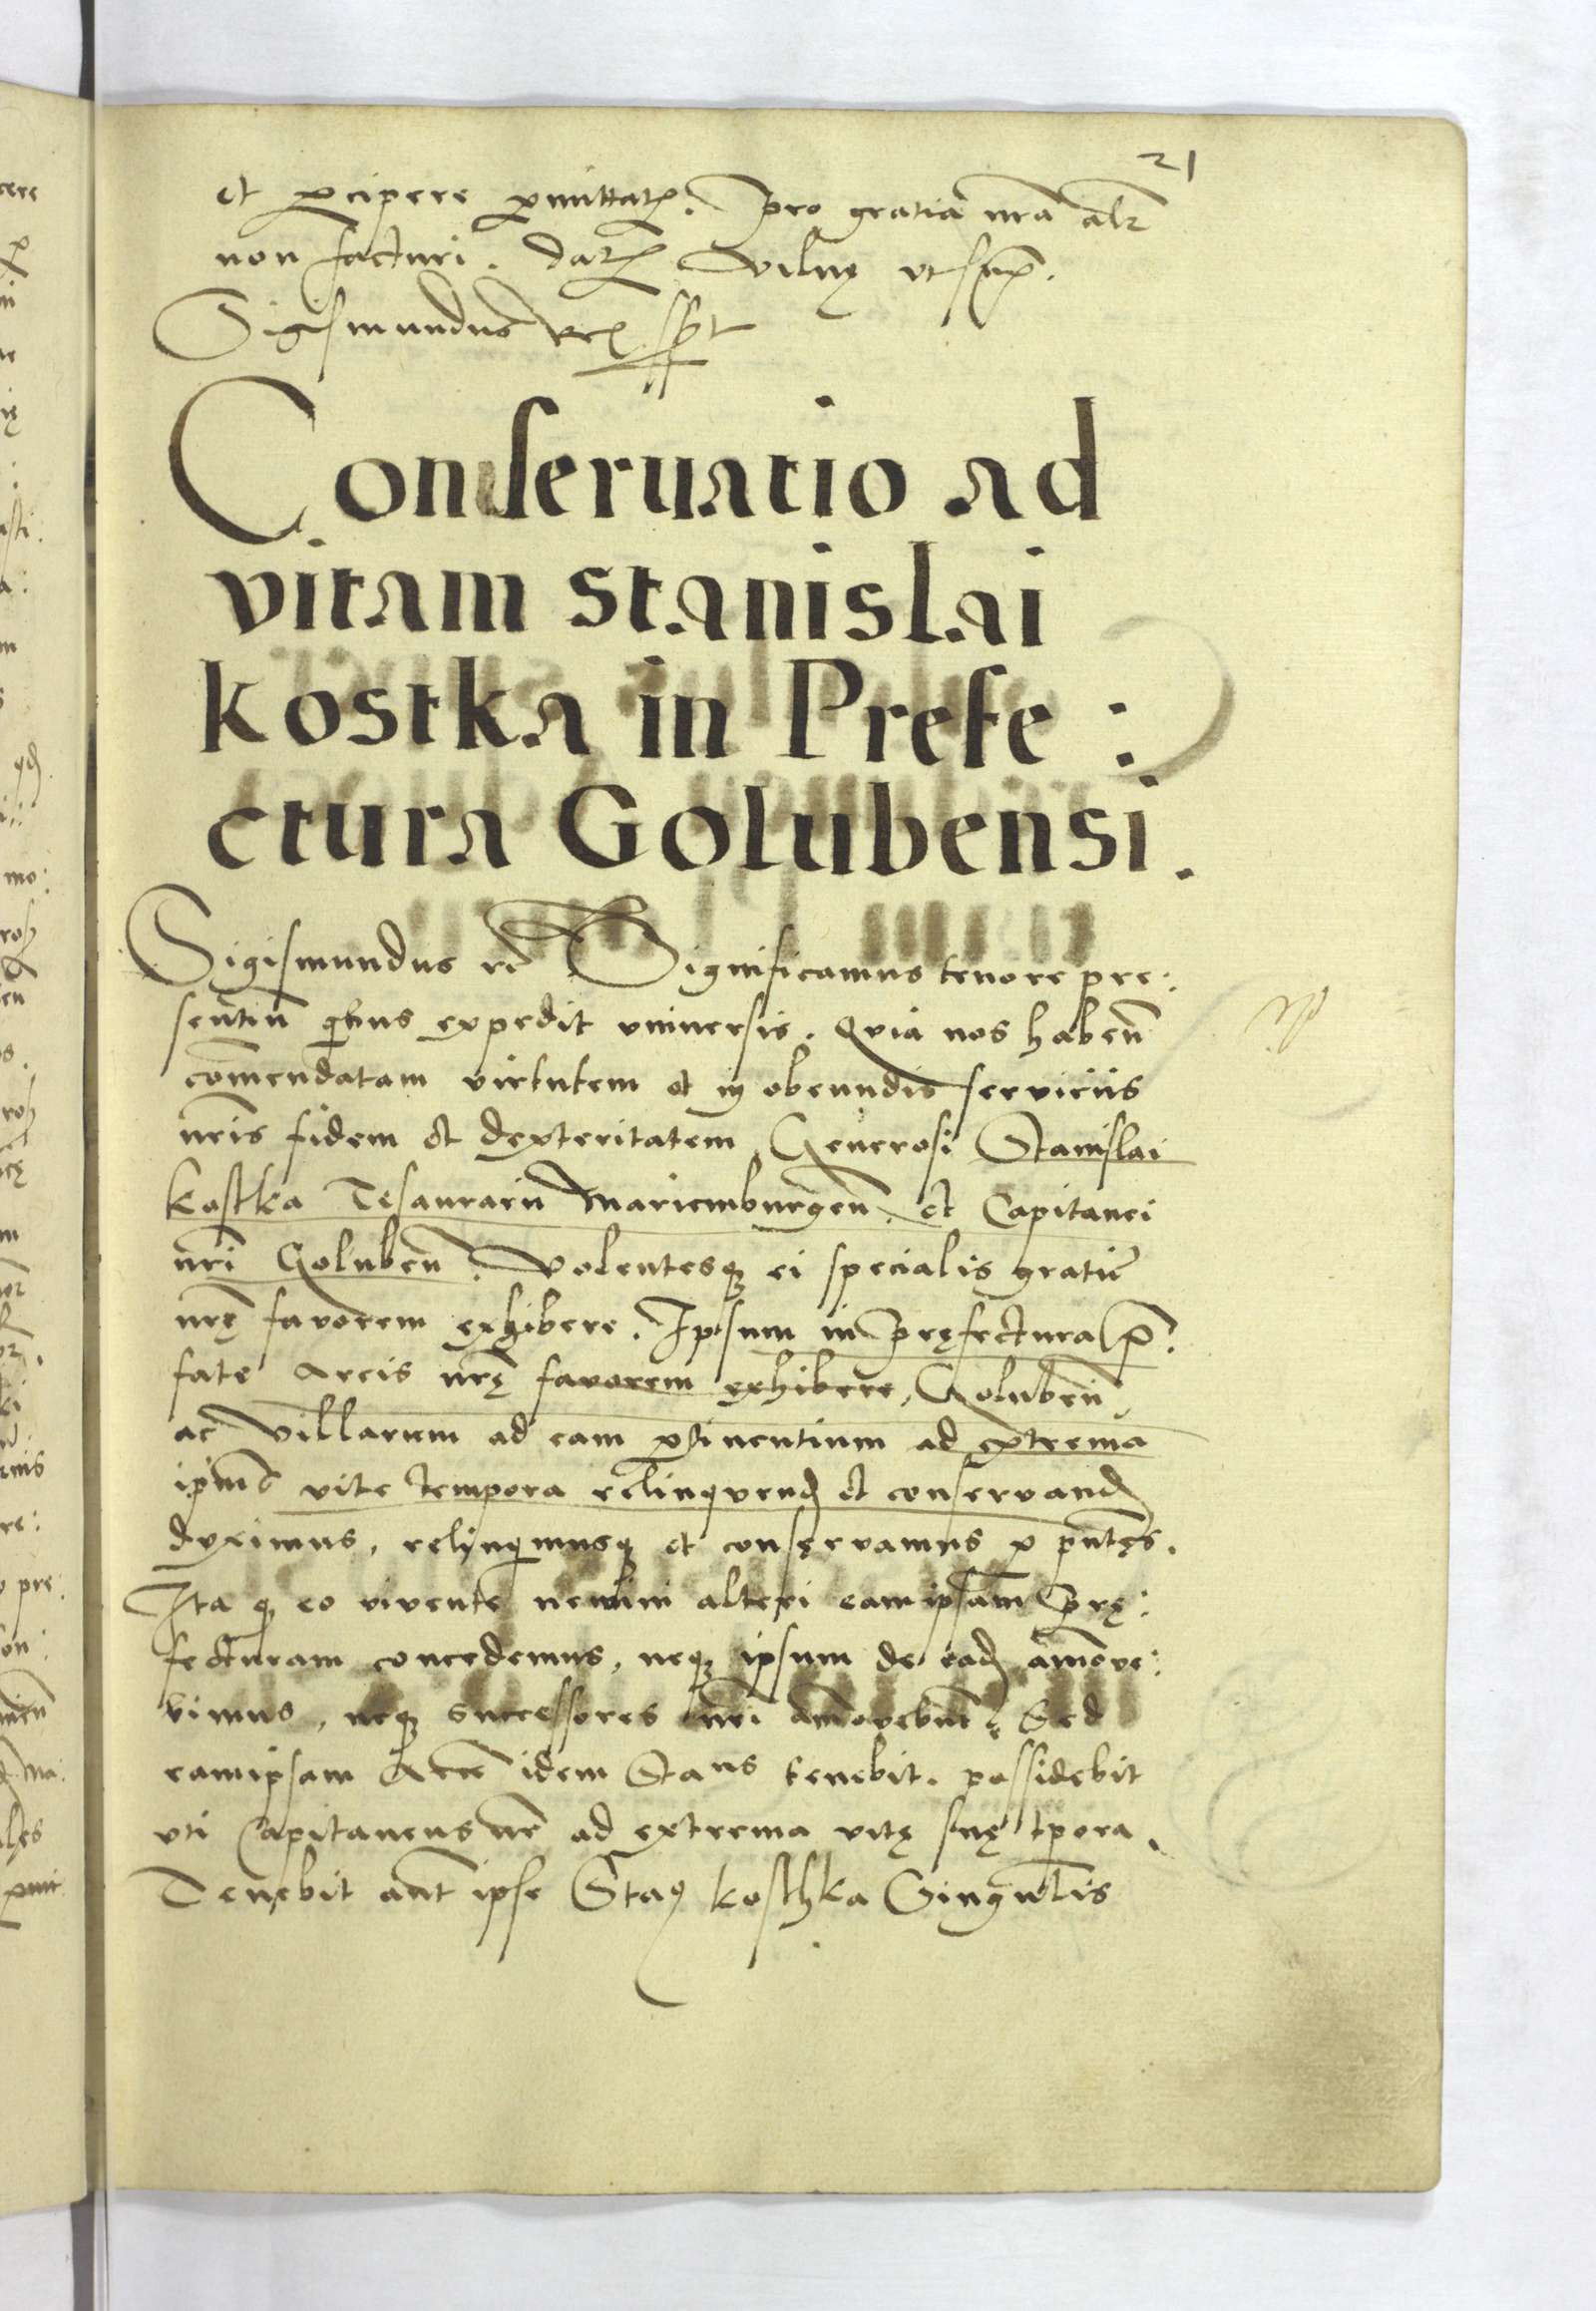 21
et ꝑcipere ꝑmittatꝭ. Pro gratia nrã alr̃
non facturi. Datꝭ Vilnę ut supꝭ.
Sigismundus Rex sst
Conseruatio ad
vitam stanislai
kostka in Prefe :
ctura Golubensi.
Sigismundus rc̃ Significamus tenore pre:
sentiũ qĩbus expedit vniuersis. Qvia nos habeñ
com̃endatam virtutem et in obeundis serviciis
nr̃is fidem et dexteritatem Generosi Stanislai
kostka Tesaurarii Mariemburgeñ. et Capitanei
nr̃i Golubeñ. Volentesq ei specialis gratię
nr̃ę favorem exhibere. Ipsum in Pręfectura p̃.
fate Arcis nr̃ę favorem exhibere, Golubeñ
ac Villarum ad eam ꝑtinentium ad extrema
ipĩus vite tempora relinqvend et conservand
dyximus, relinqĩmusq et conservamus ꝑ pñtes.
Ita q eo vivente nemini alteri eam ipsam Prę:
fecturam concedemus, neq ipsum de ead amove:
bimus, neq successores nr̃i amovebũt. Sed
eamipsam Arcẽ idem Staus tenebit. possidebit
uti Capitaneus nr̃ ad extrema vitę suę tp̃ora.
Tenebit aũt ipse Staꝰ kosthka Singulis